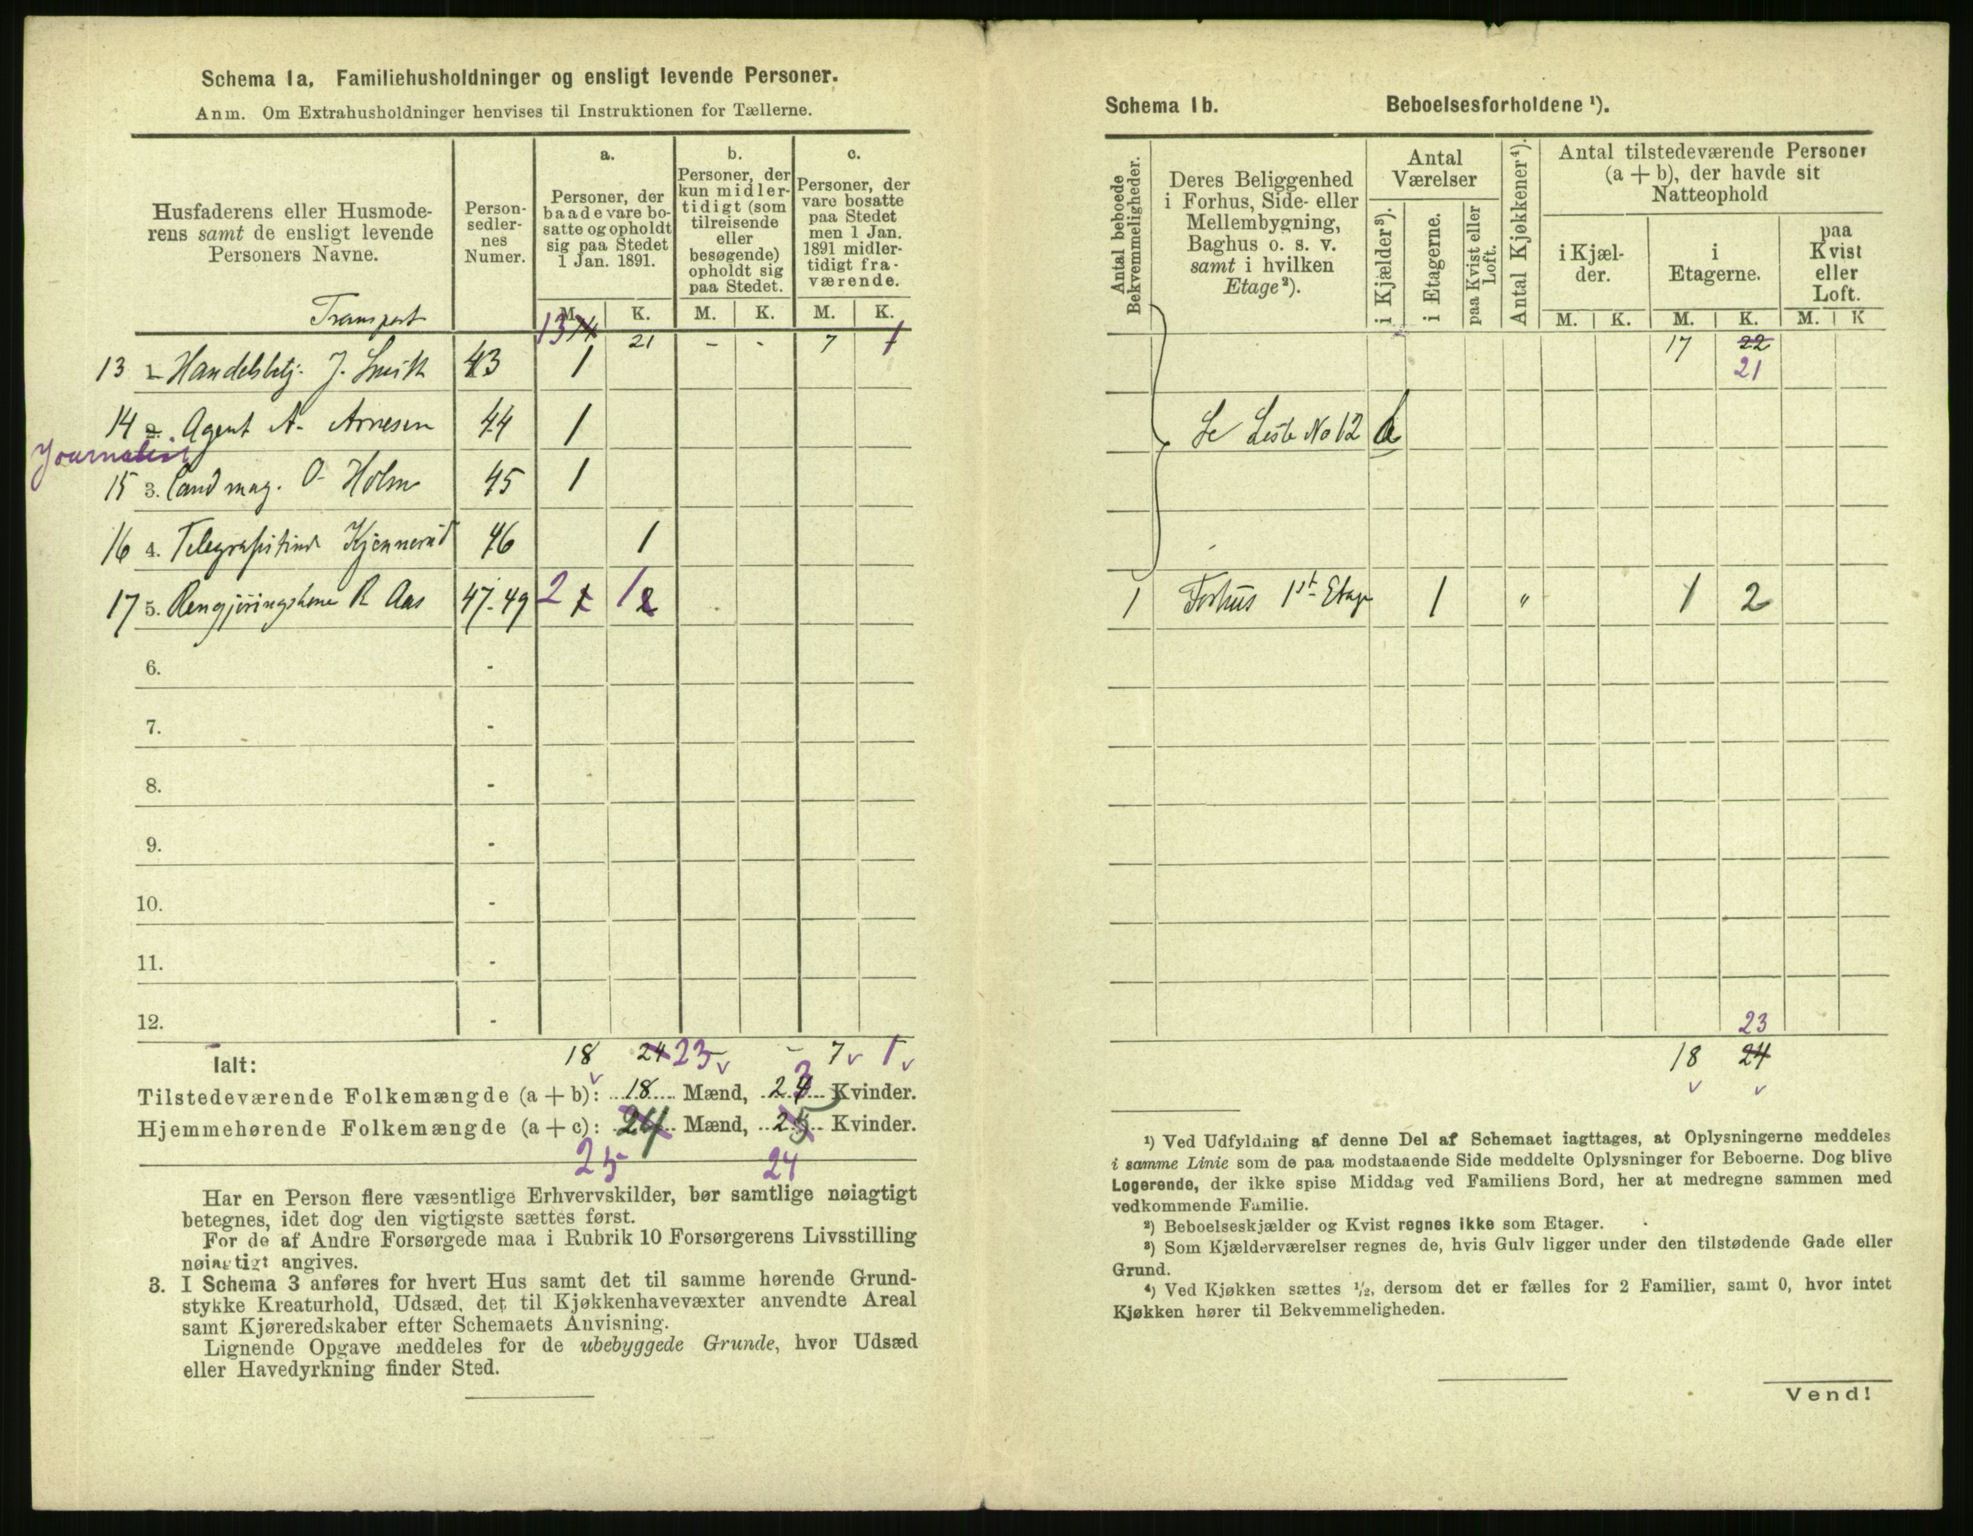 Schema 1a, Familiehusholdninger og ensligt levende Personer.
Anm. Om Extrahusholdninger henvises til Instruktionen for Tællerne.
Husfaderens eller Husmode-
rens samt de ensligt levende
Personers Navne.
Person-
sedler-
nes
Numer.
a.
Personer, der
baade vare bo-
satte og opholdt
sig paa Stedet
1 Jan. 1891.
b.
Personer, der
kun midler-
tidigt (som
tilreisende
eller
besøgende)
opholdt sig
paa Stedet.
c.
Personer, der
vare bosatte
paa Stedet
men 1 Jan.
1891 midler-
tidigt fra-
værende.
M. K. M. K. M. K.
Transport 13 14 21 - - 7 1
13 1. Handelsbetj. J. Smith 43 1
14 2. Agent A. Arnesen 44 1
Journalist
15 3. Cand mag. O. Holm 45 1
16 4. Telegrafistinde Kjennerud 46 1
17 5. Rengjøringskone R Aas 47-49 2 1 1 2
6. -
7. -
8. -
9. -
10. -
11. -
12. -
Ialt: 18 24 23 - - 7 1
Tilstedeværende Folkemængde (a + b): 18 Mænd, 24 3 Kvinder.
Hjemmehørende Folkemængde (a + c): 24 Mænd, 25 Kvinder.
25 24
Har en Person flere væsentlige Erhvervskilder, bør samtlige nøiagtigt
betegnes, idet dog den vigtigste sættes først.
For de af Andre Forsørgede maa i Rubrik 10 Forsørgerens Livsstilling
nøiagtigt angives.
3. I Schema 3 anføres for hvert Hus samt det til samme hørende Grund-
stykke Kreaturhold, Udsæd, det til Kjøkkenhavevæxter anvendte Areal
samt Kjøreredskaber efter Schemaets Anvisning.
Lignende Opgave meddeles for de ubebyggede Grunde, hvor Udsæd
eller Havedyrkning finder Sted.
Schema 1b. Beboelsesforholdene ¹).
Antal beboede
Bekvemmeligheder.
Deres Beliggenhed
i Forhus, Side- eller
Mellembygning,
Baghus o. s. v.
samt i hvilken
Etage²).
Antal
Værelser
i Kjælder³).
i Etagerne.
paa Kvist eller
Loft.
Antal Kjøkkener⁴).
Antal tilstedeværende Personer
(a + b), der havde sit
Natteophold
i Kjæl-
der.
i
Etagerne.
paa
Kvist
eller
Loft.
M. K. M. K. M. K
17 22
21
Se Liste No 12 b
1 Forhus 1st Etage 1 " 1 2
23
18 24
¹) Ved Udfyldning af denne Del af Schemaet iagttages, at Oplysningerne meddeles
i samme Linie som de paa modstaaende Side meddelte Oplysninger for Beboerne. Dog blive
Logerende, der ikke spise Middag ved Familiens Bord, her at medregne sammen med
vedkommende Familie.
²) Beboelseskjælder og Kvist regnes ikke som Etager.
³) Som Kjælderværelser regnes de, hvis Gulv ligger under den tilstødende Gade eller
Grund.
⁴) Ved Kjøkken sættes ½, dersom det er fælles for 2 Familier, samt 0, hvor intet
Kjøkken hører til Bekvemmeligheden.
Vend!